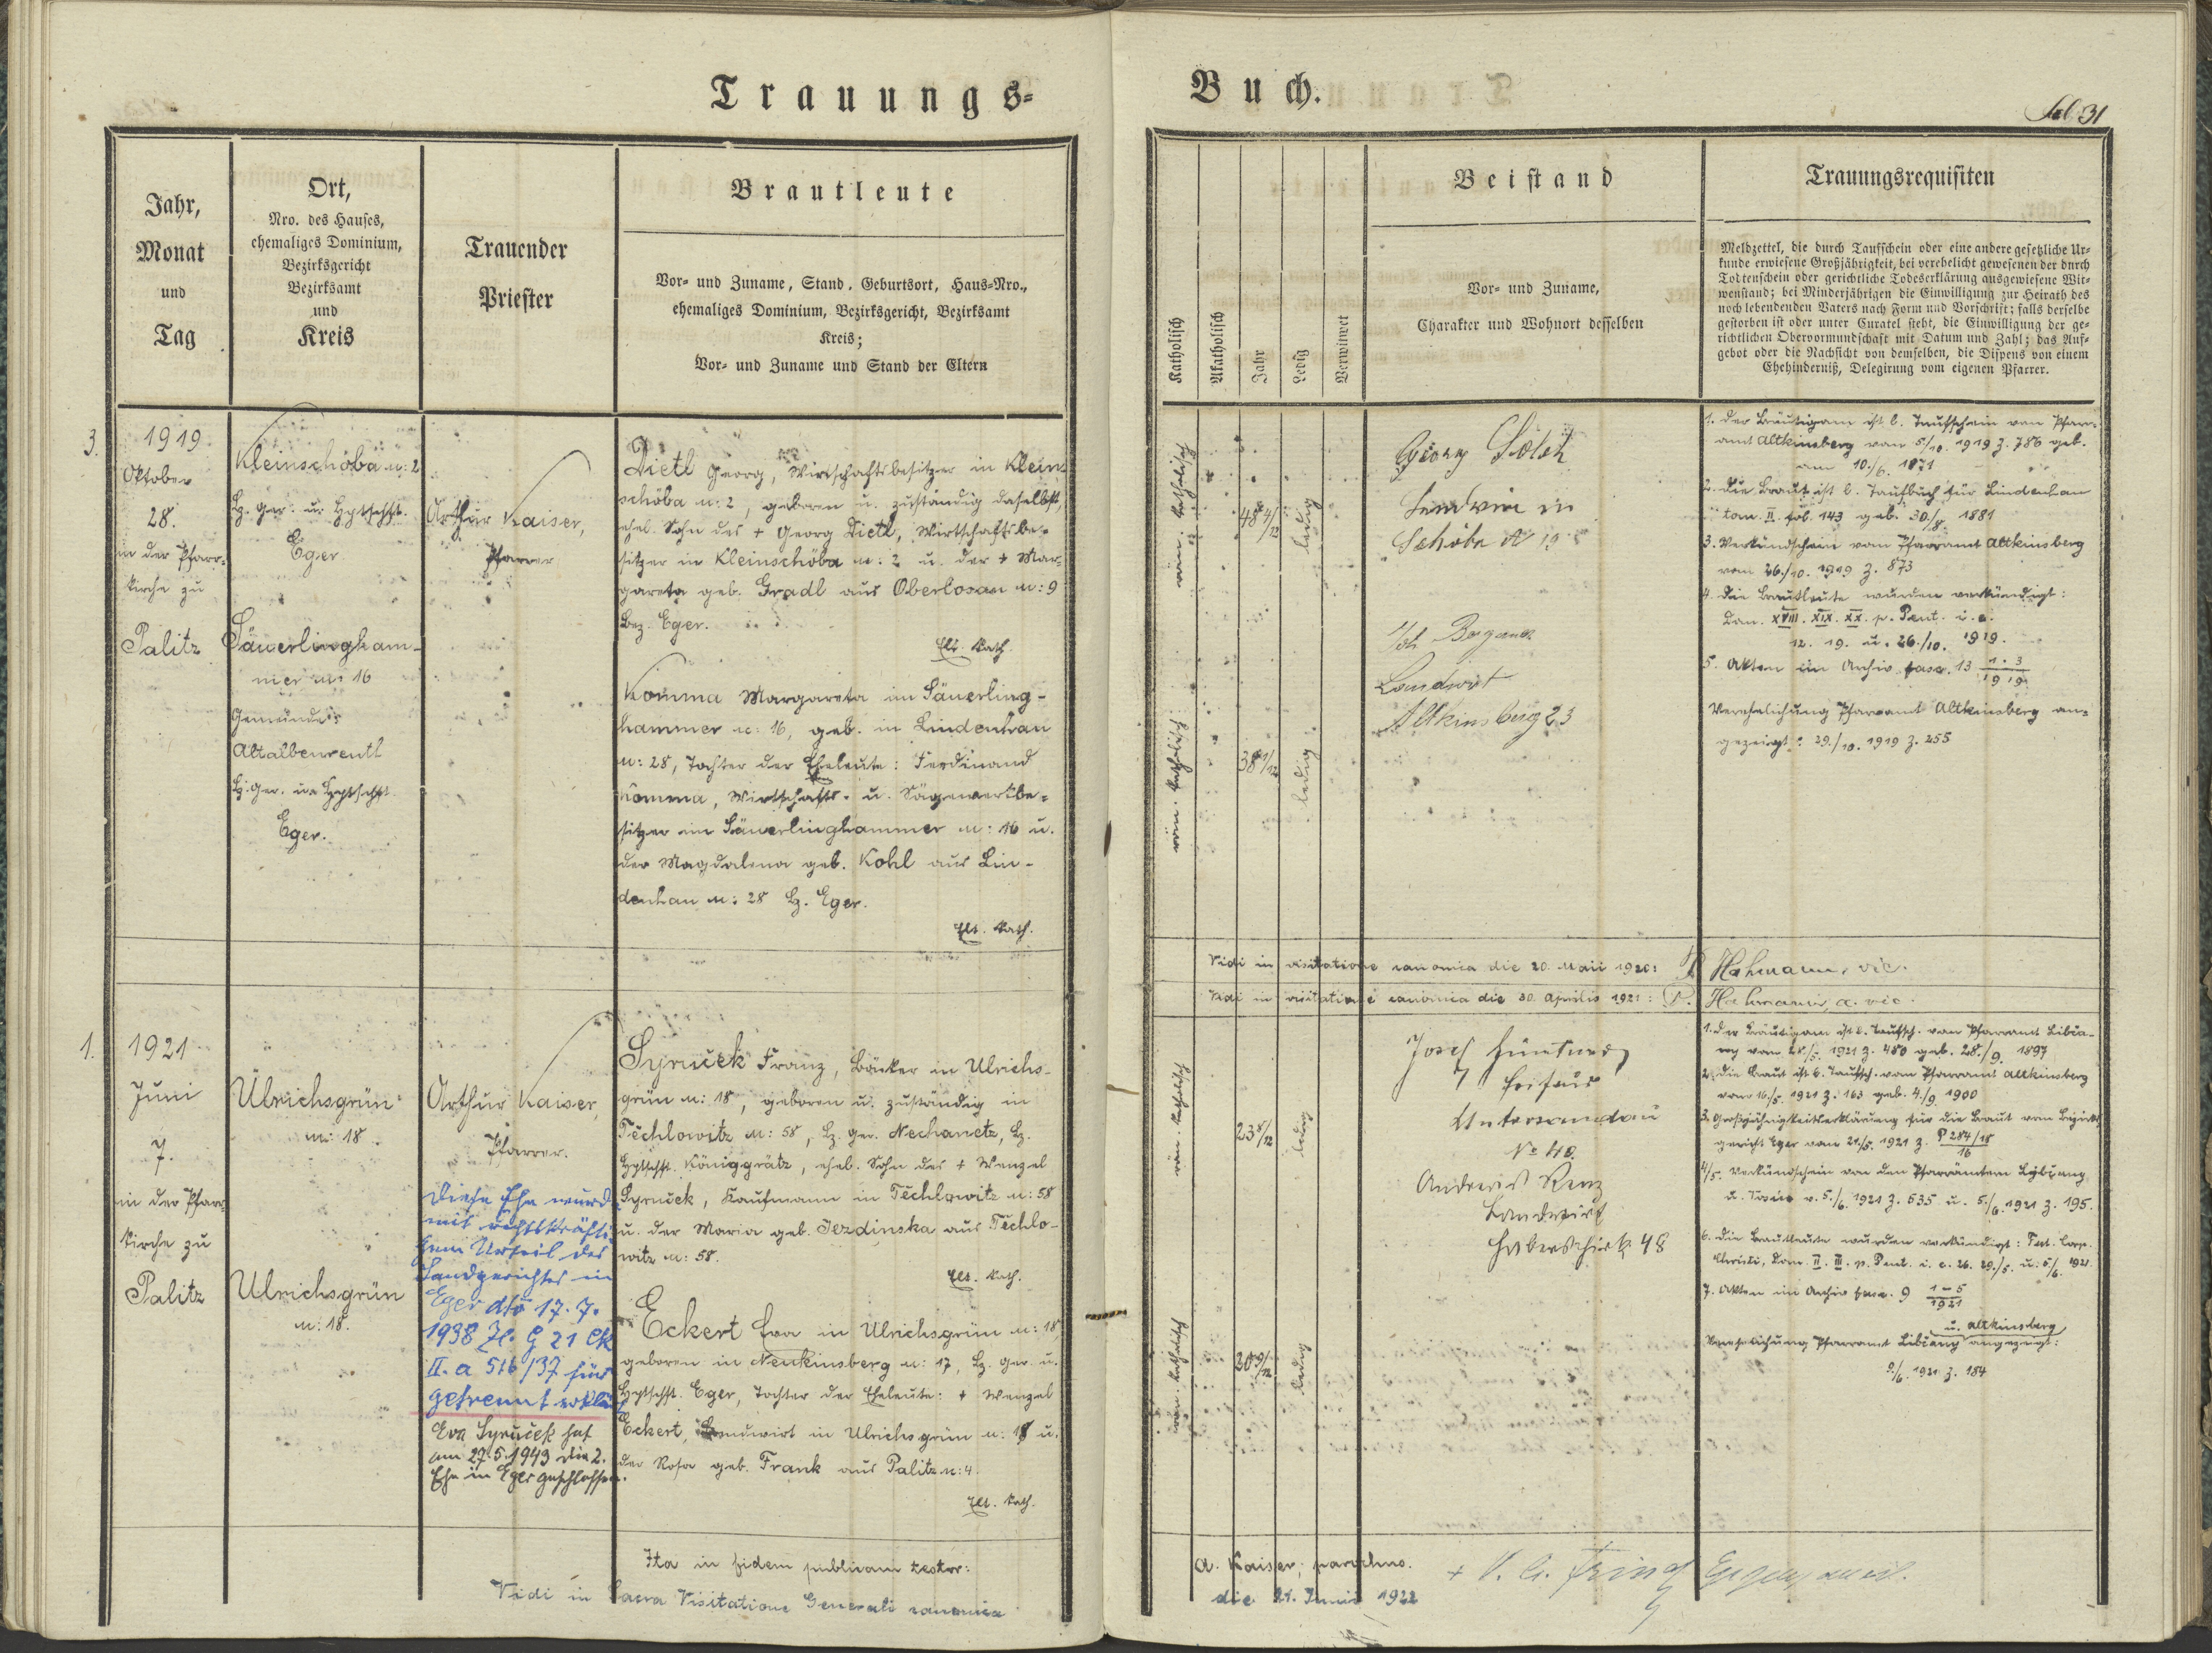 Trauungs-
Buch.
fol. 31
Jahr,
Monat
und
Tag
Ort,
Nro. des Hauses,
ehemaliges Dominium,
Bezirksgericht
Bezirksamt
und
Kreis
Trauender
Priester
Brautleute
Vor- und Zuname, Stand, Geburtsort, Haus-Nro.,
ehemaliges Dominium, Bezirksgericht, Bezirksamt
Kreis;
Vor- und Zuname und Stand der Eltern
Katholisch
Akatholisch
Jahr
Ledig
Verwitwet
Beistand
Vor- und Zuname,
Charakter und Wohnort desselben
Trauungsrequisiten
Meldzettel, die durch Taufschein oder eine andere gesetzliche Ur-
kunde erwiesene Großjährigkeit, bei verehelicht gewesenen der durch
Todtenschein oder gerichtliche Todeserklärung ausgewiesene Wit-
wenstand; bei Minderjährigen die Einwilligung zur Heirath des
noch lebendenden Vaters nach Form und Vorschrift; falls derselbe
gestorben ist oder unter Curatel steht, die Einwilligung der ge-
richtlichen Obervormundschaft mit Datum und Zahl; das Auf-
gebot oder die Nachsicht von demselben, die Dispens von einem
Ehehinderniß, Delegirung vom eigenen Pfarrer.
3.
1919
Oktober
28.
in der Pfarr-
kirche zu
Palitz
Kleinschöba n: 2
Bz. Ger. u. Hptschft.
Eger
Säuerlingham-
mer n: 16
Gemeinde
Altalbenreuth
Bz. Ger. u. Hptschft.
Eger.
Arthur Kaiser,
Pfarrer
Dietl Georg, Wirtschaftsbesitzer in Klein-
schöba n: 2, geboren u. zuständig daselbst,
ehel. Sohn des + Georg Dietl, Wirtschaftsbe-
sitzer in Kleinschöba n: 2 u. der + Mar-
gareta geb. Gradl aus Oberlosau n: 9
Bez. Eger.
Elt. kath.
Komma Margareta in Säuerling-
hammer n: 16, geb. in Lindenhau
n: 28, Tochter der Eheleute: Ferdinand
Komma, Wirtschafts- u. Sägewerkbe-
sitzer in Säuerlinghammer n: 16 u.
der Magdalena geb. Kohl aus Lin-
denhau n: 28 Bz. Eger.
Elt. kath.
röm. katholisch
48 4/12
ledig
röm. katholisch
38 1/12
ledig
Georg
Landwirt in
Schöba N 19
Joh
Landwirt
Altkinsberg 23
1. Der Bräutigam ist l. Taufschein vom Pfarr-
amt Altkinsberg vom 5./10. 1919 Z. 786 geb.
am 10./6. 1871
2. Die Braut ist l. Taufbuch für Lindenhau
tom. II. fol. 143 geb. 30./8. 1881
3. Verkündschein vom Pfarramt Altkinsberg
vom 26./10. 1919 Z. 873
4. Die Brautleute wurden verkündigt:
Dom. XVIII. XIX. XX. p. Pent. i. e.
12. 19. u. 26./10. 1919.
5. Akten im Archiv fasc. 13 1-3/1919
Verehelichung Pfarramt Altkinsberg an-
gezeigt: 29./10. 1919 Z. 255
Vidi in visitatione canonica die 20. Maii 1920: P. Hahmann, vic.
Vidi in visitatione canonica die 30. Aprilis 1921: P. Hahmann, a. vic.
1.
1921
Juni
7.
in der Pfarr-
kirche zu
Palitz
Ulrichsgrün
n: 18
Ulrichsgrün
n: 18.
Arthur Kaiser,
Pfarrer.
Diese Ehe wurde
mit rechtskräfti-
gem Urteil des
Landgerichtes in
Eger dto 17. 7.
1938 Zl. G 21 Ck
II. a 516/37 für
getrennt erklärt
Eva Syruček hat
am 27.5.1943 die 2.
Ehe in Eger geschlossen.
Syruček Franz, Bäcker in Ulrichs-
grün n: 18, geboren u. zuständig in
Těchlowitz n: 58, Bz. Ger. Nechanetz, Bz.
Hptschft. Königgrätz, ehel. Sohn des + Wenzel
Syruček, Kaufmann in Těchlowitz n: 58
u. der Maria geb. Jezdinska aus Těchlo-
witz n: 58.
Elt. kath.
Eckert Eva in Ulrichsgrün n: 18
geboren in Neukinsberg n: 17, Bz. Ger. u.
Hptschft. Eger, Tochter der Eheleute: + Wenzel
Eckert, Landwirt in Ulrichsgrün n: 18 u.
der Rosa geb. Frank aus Palitz n: 4.
Elt. kath.
röm. katholisch
23 8/12
ledig
röm. katholisch
20 9/12
ledig
Josef
Untersandau
No 40.
Andreas Renz
Landwirt
48
1. Der Bräutigam ist l. Taufsch. vom Pfarramt Libča-
ny vom 28./5. 1921 Z. 480 geb. 28./9. 1897
2. Die Braut ist l. Taufsch. vom Pfarramt Altkinsberg
vom 16/5. 1921 Z. 163 geb. 4./9. 1900
3. Großjährigkeitserklärung für die Braut vom Bezirks-
gericht Eger vom 21./5. 1921 Z. P 284/18/16
4/5. Verkündschein von den Pfarrämtern Libčany
u. v. 5./6. 1921 Z. 535 u. 5./6. 1921 Z. 195.
6. Die Brautleute wurden verkündigt: Fest. Corp.
Christi, Dom. II. III. p. Pent. i. e. 26. 29./5. u. 5/6. 1921
7. Akten im Archiv fasc. 9 1-5/1921
u. Altkinsberg
Verehelichung Pfarramt Libčany angezeigt:
/6. 1921 Z. 184
Ita in fidem publicam testor:
A. Kaiser, parochus.
Vidi in Sacra Visitatione Generali canonica
die 21. Junii 1922